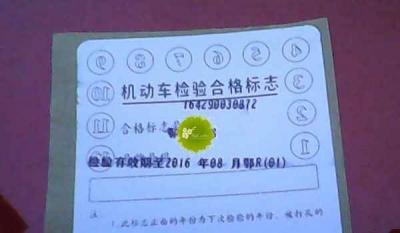 9 8 7 6 5 4
10 机动车检验合格标志 3
164290030872
11 合格标志 2
1
检验有效期至2016 年08 月鄂R(01)
注
1.此标志正面的年份为下次检验的年份，被打孔的